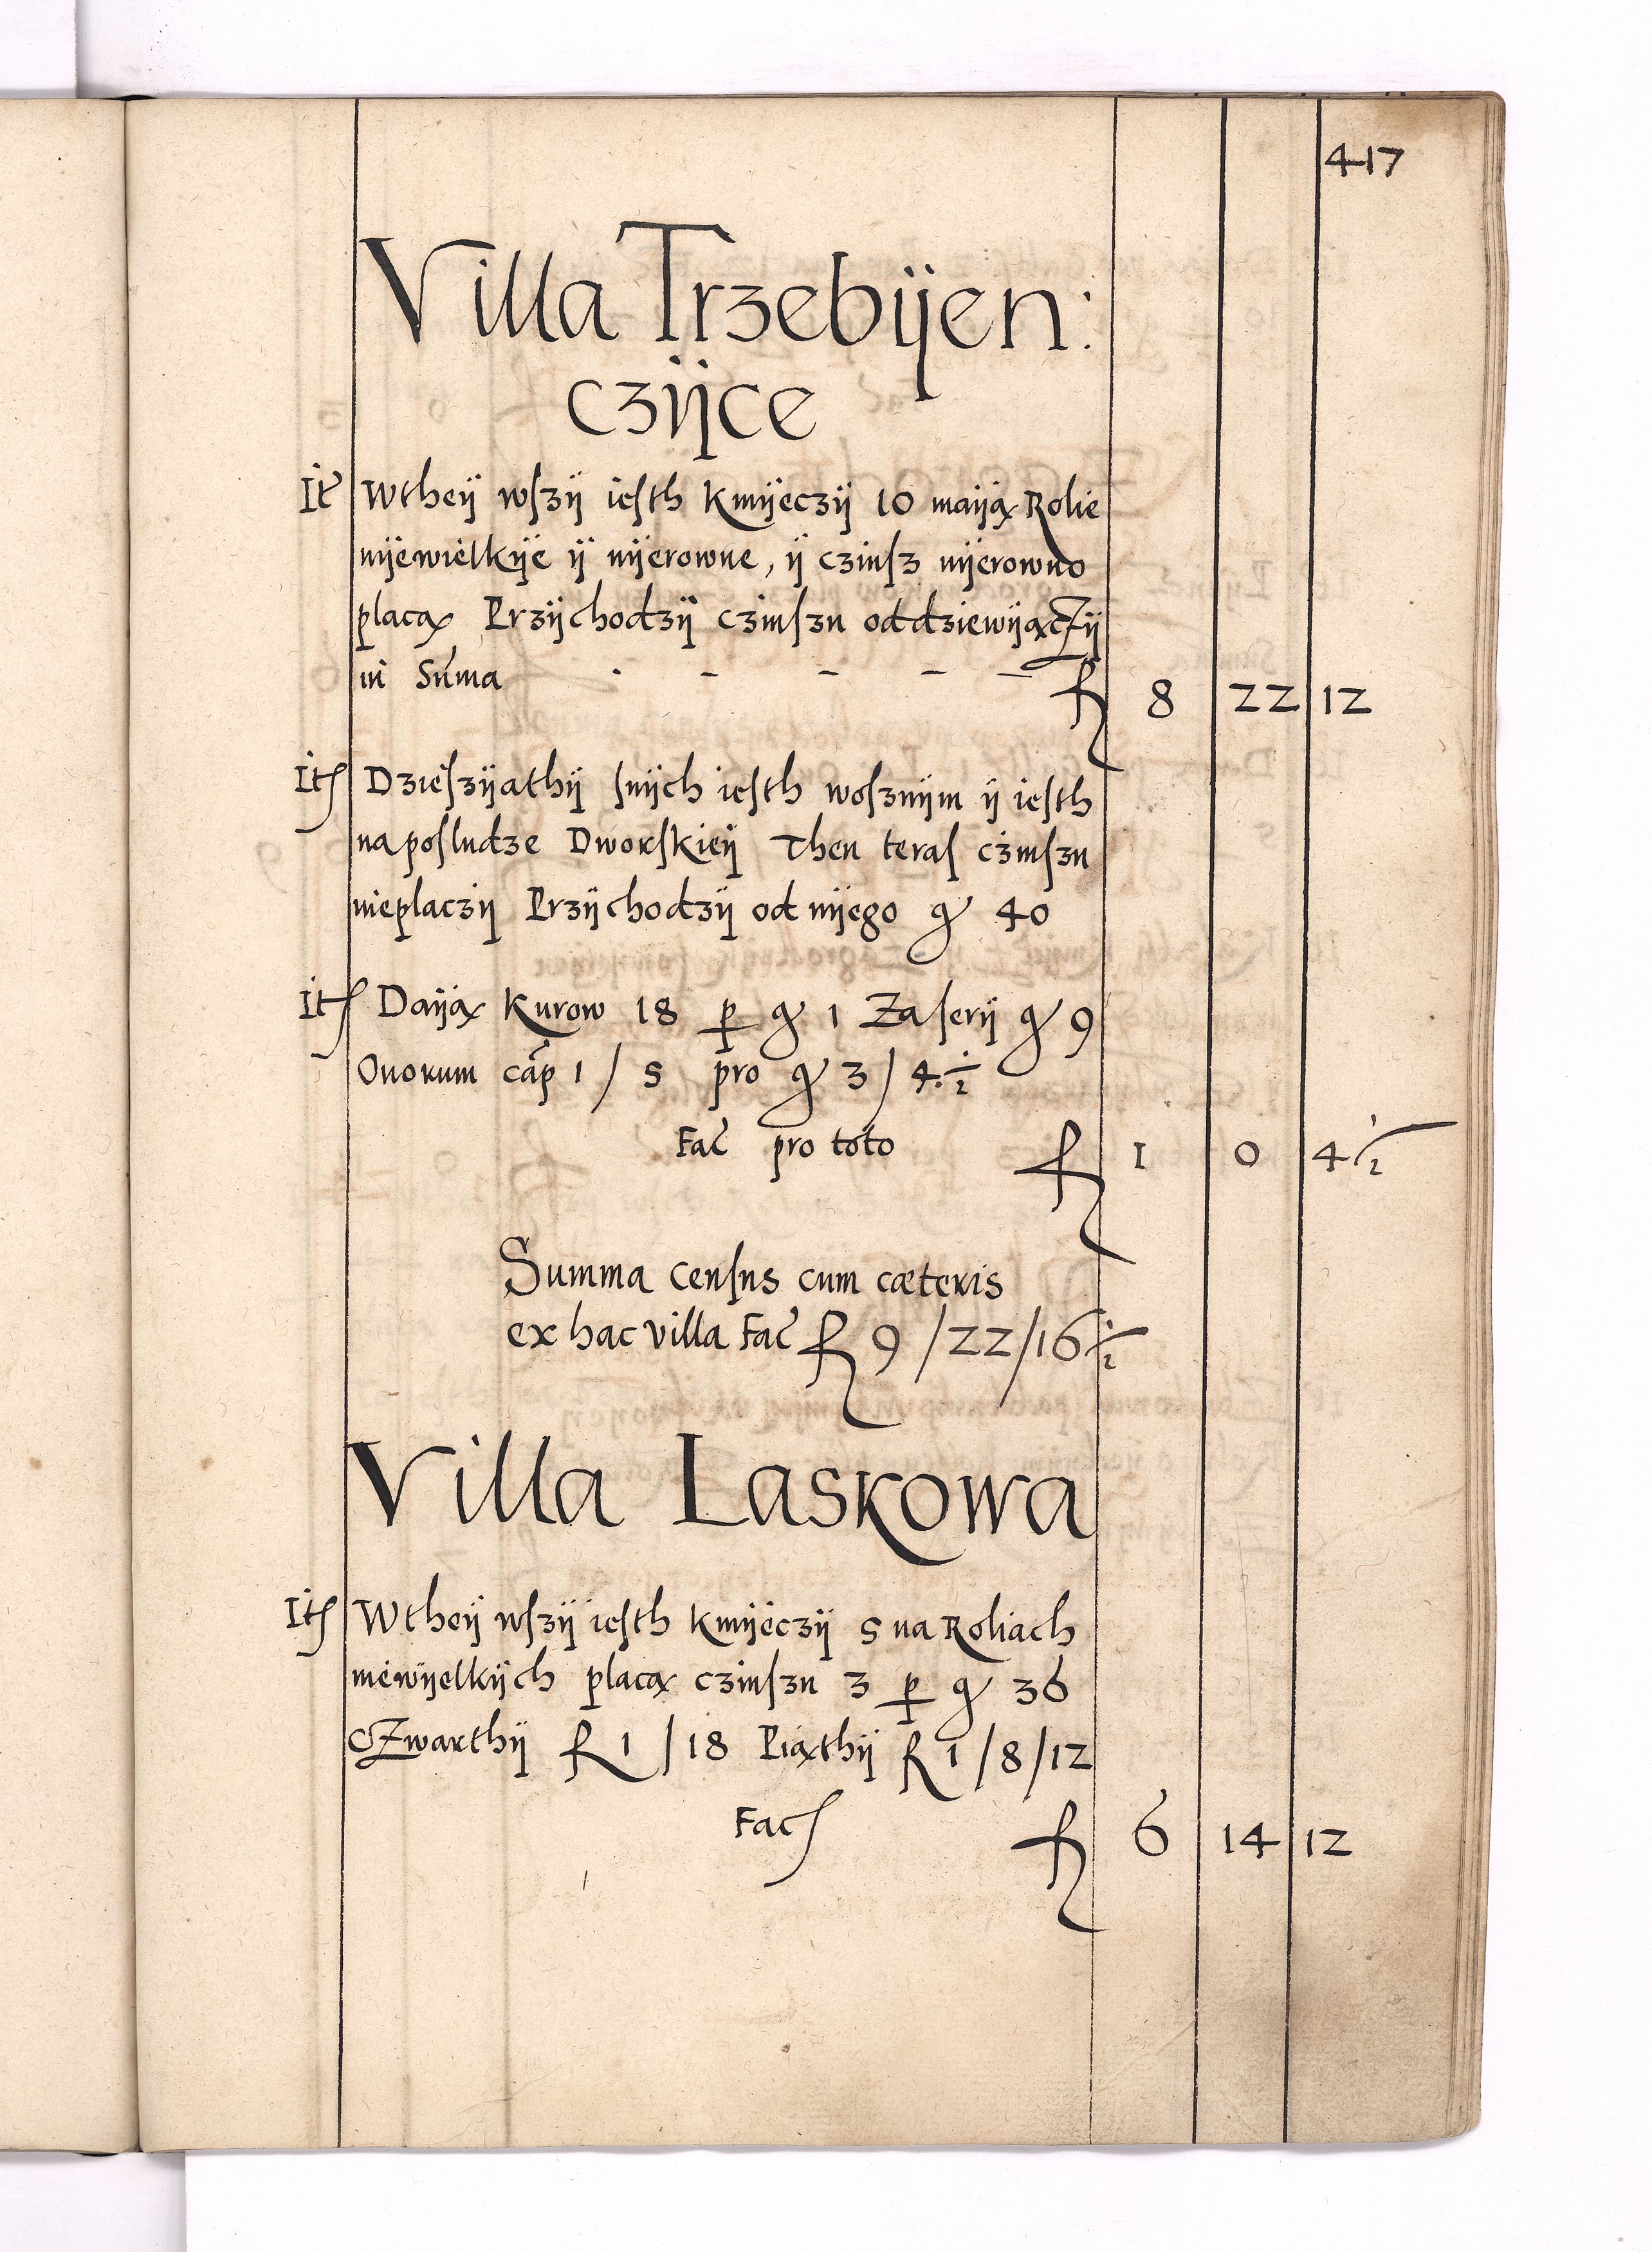 417
Villa Trzebÿen:
czÿce
It Wtheÿ wſzÿ ieſth Kmÿeczÿ 10 maÿą Rolie
nÿewielkÿe ÿ nÿerowne, ÿ czinſz nÿerowno
placą Przÿchodzÿ czinſzu od dziewÿączÿ
in Sum̄a - - - - - fl 8 22 12
Itꝭ Dzieſzÿathÿ ſnÿch ieſth woſznÿm ÿ ieſth
na poſludze Dworſkieÿ Then teraſ czinſzu
nieplaczÿ Przÿchodzÿ od nÿego gr 40
Itꝭ Daÿą Kurow 18 ꝑ gr 1 Za ſerÿ gr 9
Ouorum cap̄ 1 / 5 pro gr 3 / 4 ½
Fac̄ pro toto fl 1 0 4 ½
Summa Cenſus cum cæteris
ex hac villa Fac̄ fl 9 / 22 / 16 ½
Villa Laskowa
Itꝭ Wtheÿ wſzÿ ieſth Kmÿeczÿ 5 na Roliach
niewÿelkÿch placą czinſzu 3 ꝑ gr 36
CZwarthÿ fl 1 / 18 Piąthÿ fl 1 / 8 / 12
Facꝭ fl 6 14 12